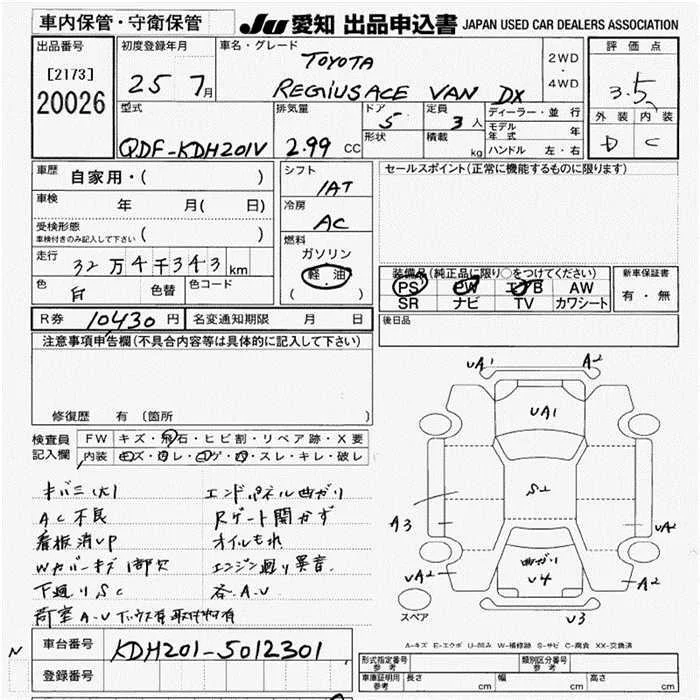 車内保管・守衛保管
JU 愛知 出品申込書 JAPAN USED CAR DEALERS ASSOCIATION
出品番号
[2173]
20026
初度登録年月
25 7月
車名・グレード
TOYOTA
REGIUSACE VAN DX
2WD
・
4WD
評価点
3.5
外装 内装
D C
型式
QDF-KDH201V
排気量
2.99 CC
ドア
5
形状
定員
3人
積載
kg
ディーラー・並行
モデル年式 年
ハンドル 左・右
車歴 自家用・( )
車検 年 月( 日)
受検形態 ( )
車検付きのみ記入して下さい
走行 32万4千343km
色 白 色替 色コード
シフト
1AT
冷房
AC
燃料
ガソリン
軽油
( )
セールスポイント(正常に機能するものに限ります)
装備品(純正品に限り○をつけてください)
PS PW エアB AW
SR ナビ TV カワシート
新車保証書
有・無
R券 10,430円 名変通知期限 月 日
後日品
注意事項申告欄(不具合内容等は具体的に記入して下さい)
修復歴 有 (箇所
検査員
記入欄
FW キズ・飛石・ヒビ割・リペア跡・X要
内装 キズ・汚レ・コゲ・穴・スレ・キレ・破レ
キバミ(大) エンドパネル曲ガリ
AC不良 Rゲート開かず
看板消UP オイルもれ
Wカバーキズ1部欠 エンジン廻り異音
下廻りSC 各A.U
荷室A・U 取付物有
UA1 A2
UA1
S2
A3 UA2
曲ガリ
U4
UA2 A2
U3
スペア
A-キズ E-エクボ U-凹み W-補修跡 S-サビ C-腐食 XX-交換済
N
車台番号 KDH201-5012301
登録番号
形式指定番号 参考 類別区分番号 参考
車庫証明用 参考 長さ cm 幅 cm 高さ cm